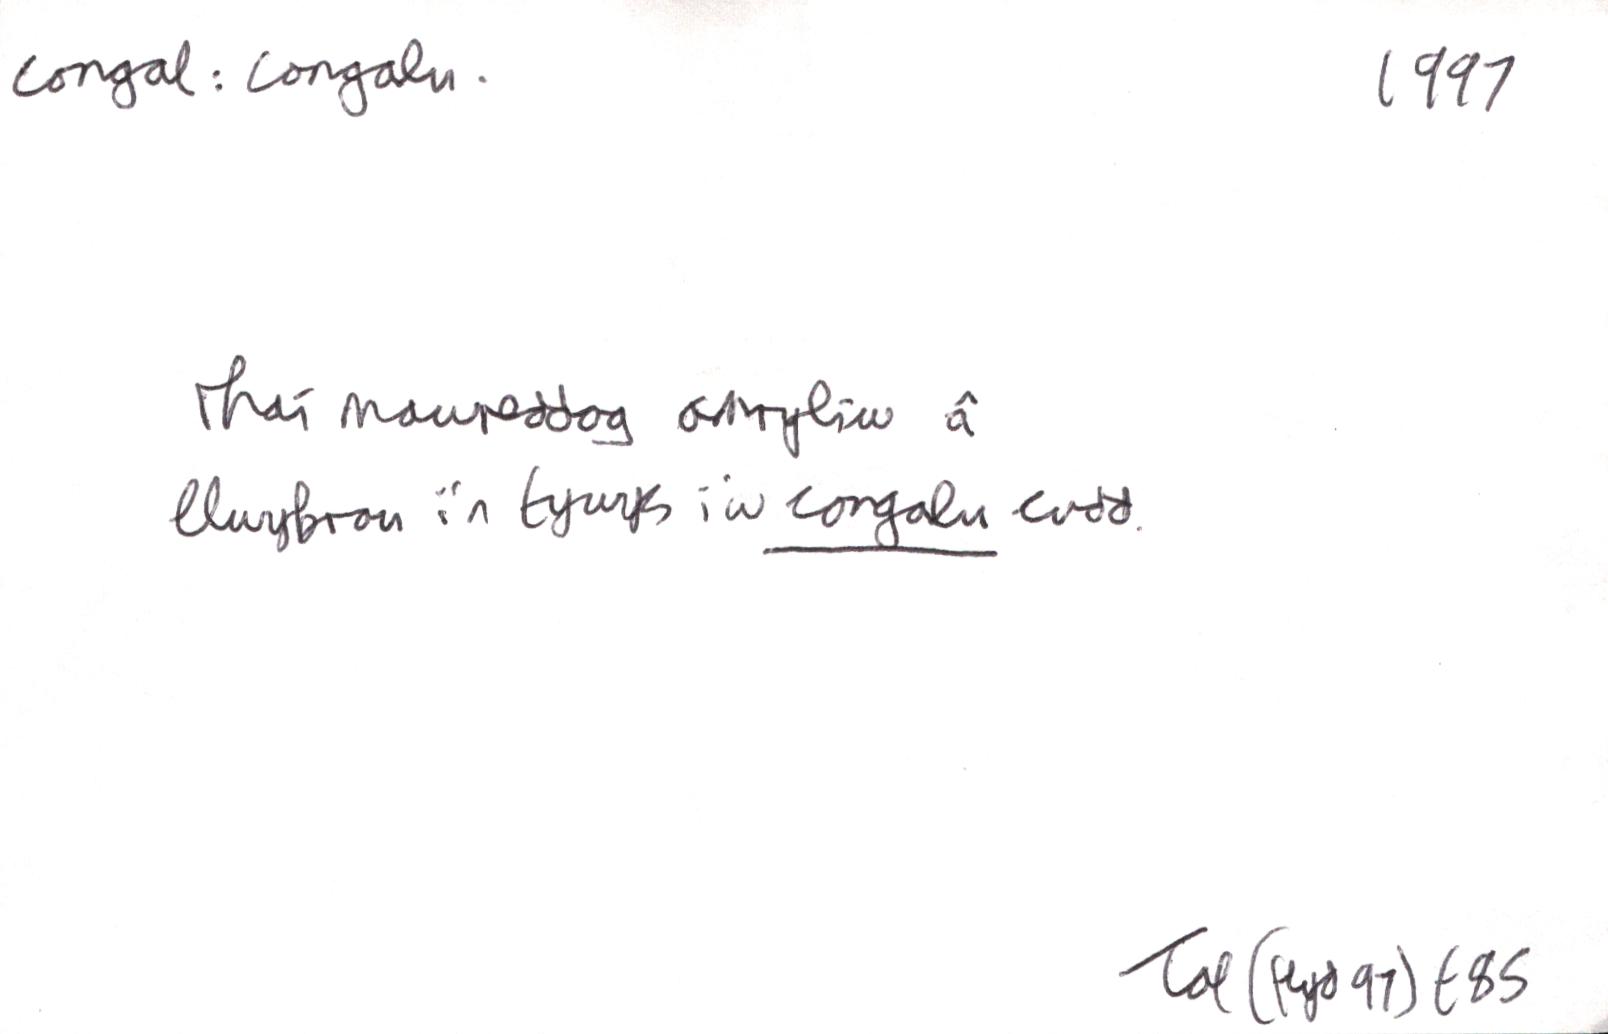 congal : congalu. 1997
rhai mawreddog amryliw â
llwybrau i'n tywys i'w congalu cudd.
Tal (Hyd 97) t85